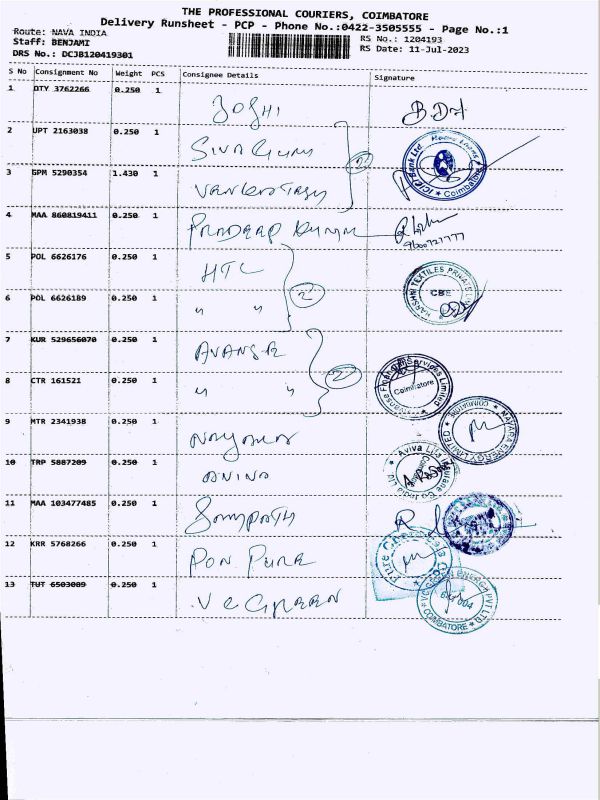 THE PROFESSIONAL COURIERS, COIMBATORE
Delivery Runsheet - PCP - Phone No.:0422-3505555 - Page No.:1
Route: NAVA INDIA RS No.: 1204193
Staff: BENJAMI RS Date: 11-Jul-2023
DRS No.: DCJB120419301
S No Consignment No Weight PCS Consignee Details Signature
1 OTY 3762266 0.250 1 JOSHI
2 UPT 2163038 0.250 1 Siva Guru
3 GPM 5290354 1.430 1 2 ICICI Bank Ltd Coimbatore
4 MAA 860819411 0.250 1 PRADEEP
5 POL 6626176 0.250 1 HTL
6 POL 6626189 0.250 1 " " 2 HARSHNI TEXTILES CBE
7 KUR 529656070 0.250 1 AVANSE
8 CTR 161521 0.250 1 " " 2 Avanse Financial Services Limited Coimbatore
9 MTR 2341938 0.250 1 NAYARA NAYARA ENERGY LIMITED COIMBATORE
10 TRP 5887209 0.250 1 Aviva Life Insurance Co India Ltd
11 MAA 103477485 0.250 1 Sampath
12 KRR 5768266 0.250 1 PON PURE Pure Chemicals Co
13 TUT 6503089 0.250 1 VC GREEN VC GREEN ENERGY PVT LTD COIMBATORE